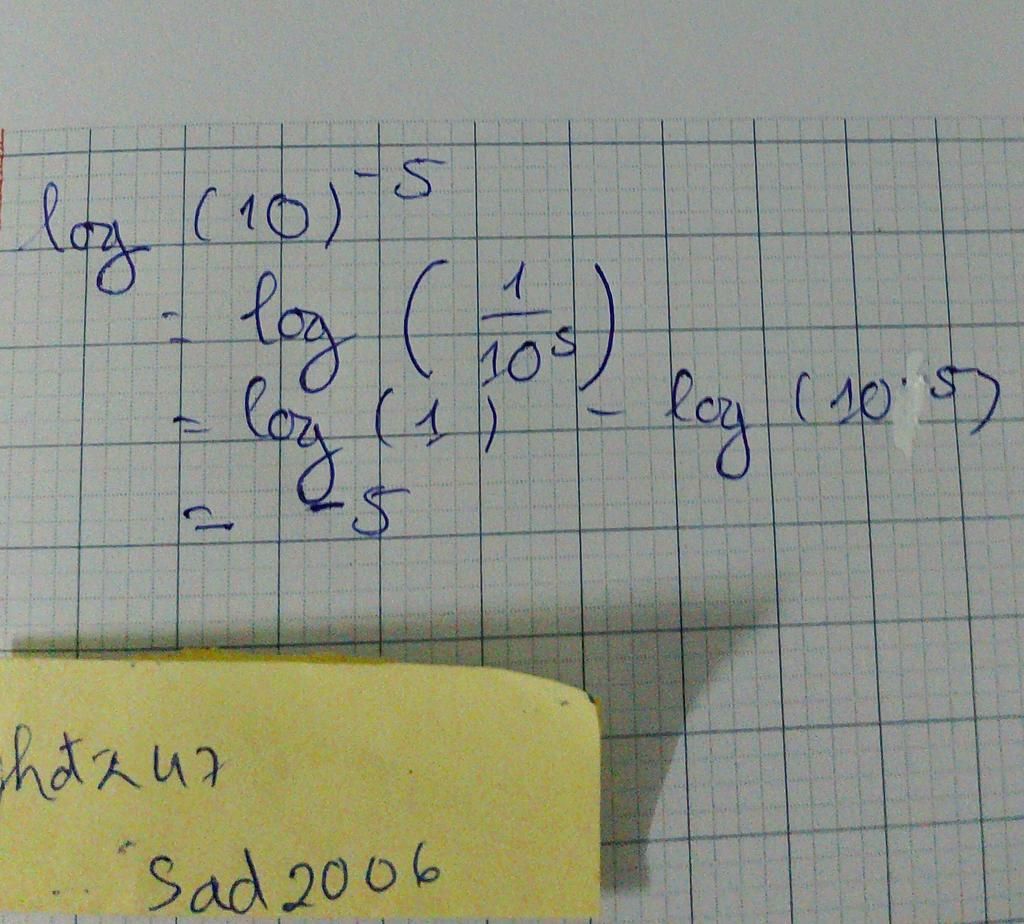 log (10)⁻⁵
= log (1/10⁵)
= log (1) - log (10⁵)
= -5
Sad2006